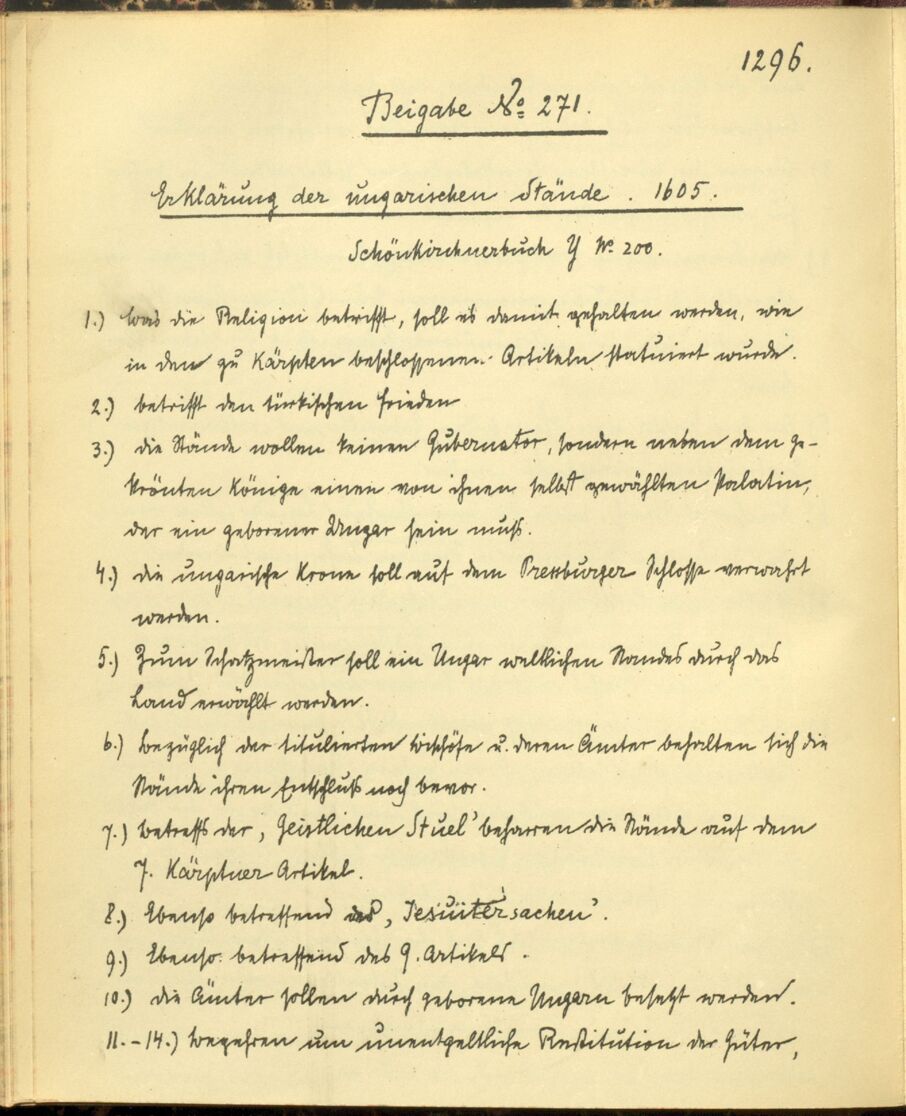 1296.
Beigabe No. 271.
Erklärung der ungarischen Stände. 1605.
Schönkirchnerbuch Y No. 200.
1.) Was die Religion betrifft, soll es damit gehalten werden, wie
in den zu Kärpten beschlossenen Artikeln statuiert wurde.
2.) betrifft den türkischen Frieden
3.) die Stände wollen keinen Gubernator, sondern neben dem ge-
krönten Könige einen von ihnen selbst gewählten Palatin,
der ein geborener Ungar sein muß.
4.) die ungarische Krone soll auf dem Pressburger Schlosse verwahrt
werden.
5.) Zum Schatzmeister soll ein Ungar weltlichen Standes durch das
Land erwählt werden.
6.) bezüglich der titulierten Bischöfe u. deren Ämter behalten sich die
Stände ihren Entschluß noch bevor.
7.) betreffs der, Geistlichen Stuel' beharren die Stände auf dem
7. Kärptner Artikel.
8.) Ebenso betreffend der, Jesuitersachen'.
9.) Ebenso betreffend des 9. Artikels.
10.) die Ämter sollen durch geborene Ungarn besetzt werden.
11.-14.) begehren um unentgeltliche Restitution der Güter,